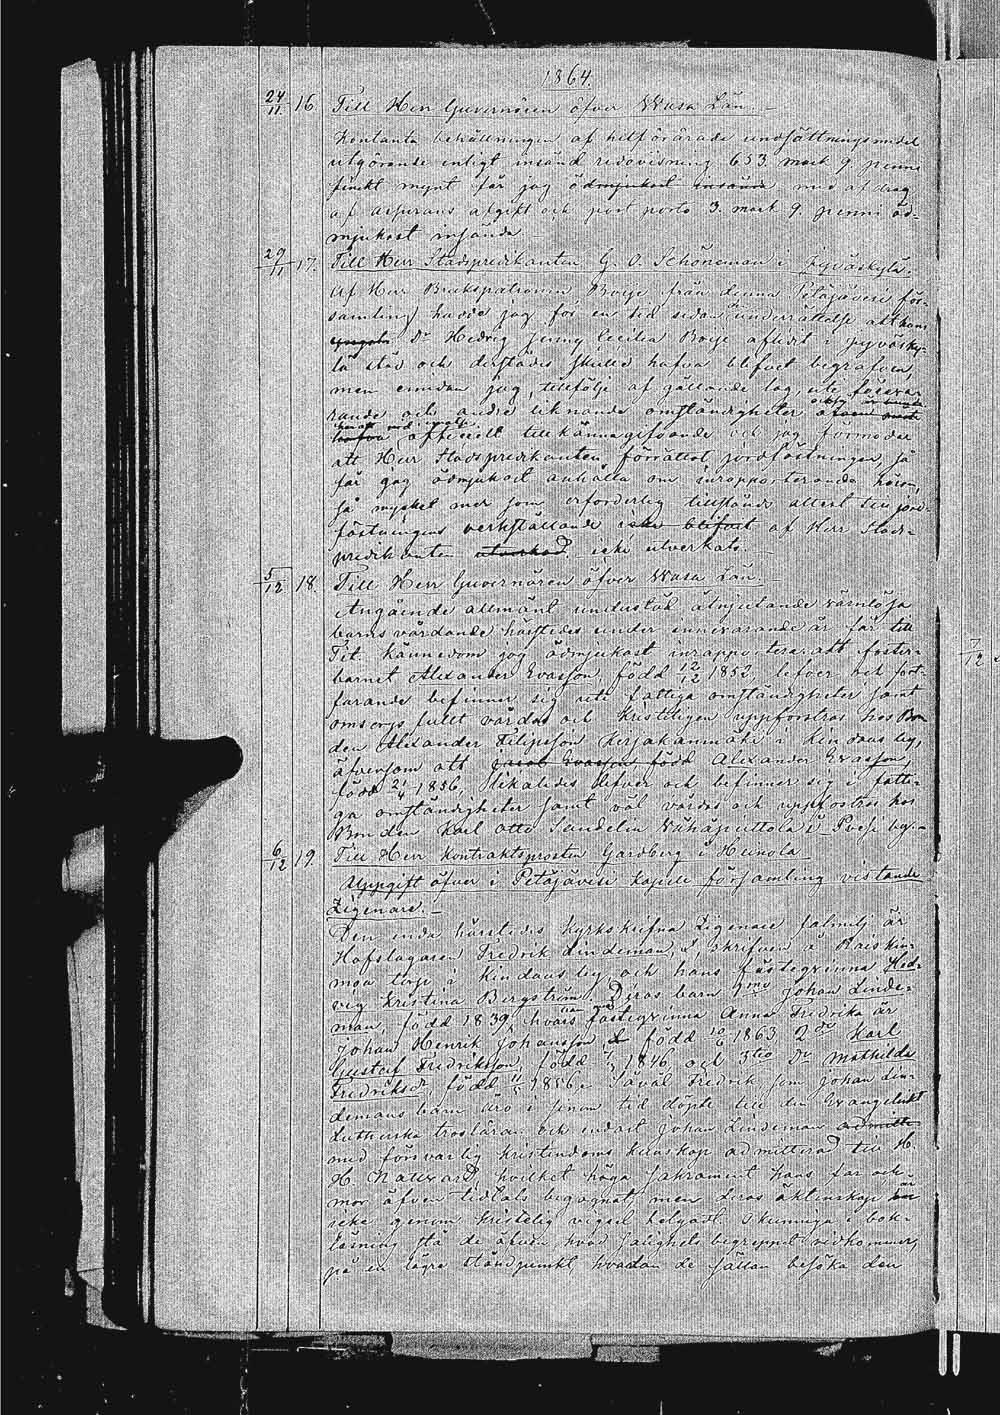 1864.
24/11. 16. Till Herr Guvernören öfver Wasa Län. –
Kontanta behållningen af hitförärade undsättningsmedel
utgörande enligt insänd redovisning 653. mark 9. penni
finskt mynt får jag ödmjukast insända med afdrag
af assurans afgift och post porto 3. mark 9. penni öd-
mjukast insända –
29/11 17. Till Herr Stadspredikanten G. O. Schöneman i Jyväskylä.
Af Herr Brukspatronen Boije från denna Petäjävesi för-
samling hade jag för en tid sedan underrättelse att hans
Dr Hedvig Jenny Cecilia Boije aflidit i Jyväsky-
lä stad och derstädes skulle hafva blifvit begrafven,
men emedan jag, tillfölje af gällande lag,
rande och andre liknande omständigheter
officiellt tillkännagifvande och jag förmodar
att Herr Stadspredikanten förrättat jordfästningen, så
får jag ödmjukast anhålla om inrapporterande härom,
så mycket mer som erforderlig tillstånd attest till jord-
fästningens verkställande icke blifvit af Herr Stads-
predikanten utverkad icke utverkats.
5/12 18. Till Herr Guvernören öfver Wasa Län. –
Angående allmänt understöd åtnjutande värnlösa
barns vårdande härstedes under innevarande år får till
Tit. kännedom jag ödmjukast inrapportera att foster-
barnet Alexander Evasson, född 12/12 1852, lefver och fort-
farande befinner sig uti fattiga omständigheter samt
omsorgsfullt vårdas och kristeligen uppfostras hos Bon
den Alexander Filipsson Kerjakanmäki i Kindaus by,
äfvensom att Jacob Evasson född Alexander Evasson,
född 21/4 1856, likaledes lefver och befinner sig i fatti-
ga omständigheter samt väl vårdas och uppfostras hos
Bonden Karl Otto Sandelin Vähäpiittola i Pvesi by. –
6/12 19. Till Herr Kontraktsprosten Gardberg i Heinola
Uppgift öfver i Petäjävesi kapell församling vistande
Zigenare. –
Den enda härstedes kyrkskrifna Zigenare familj är
Hofslagaren Fredrik Lindeman, skrifven å Raiskin-
moa torp i Kindaus by och hans fästeqvinna Hed-
vig Kristina Bergström. Deras barn 1mo Johan Linde-
man, född 1839, hvars fästeqvinna Anna Fredrika är
Johan Henrik Johansson född 10/6 1863 2do Karl
Gustaf Fredriksson, född 1846 och 3tio Dr Mathilda
Fredriksdr född 1856. Såväl Fredrik som Johan Lin-
demans barn äro i sinom tid döpte till den Evangeliskt
Lutherska trosläran och endast Johan Lindeman admitte
med försvarlig kristendoms kunskap admitterad till H.
H. Nattvard, hvilket höga sakrament hans far och
mor äfven tidtals begagnat, men deras äktenskap är
icke genom kristelig vigsel helgadt. Okunniga i bok-
läsning stå de äfven hvad salighets begreppet vidkommer,
på en lägre ståndpunkt hvadan de sällan besöka den
7/12